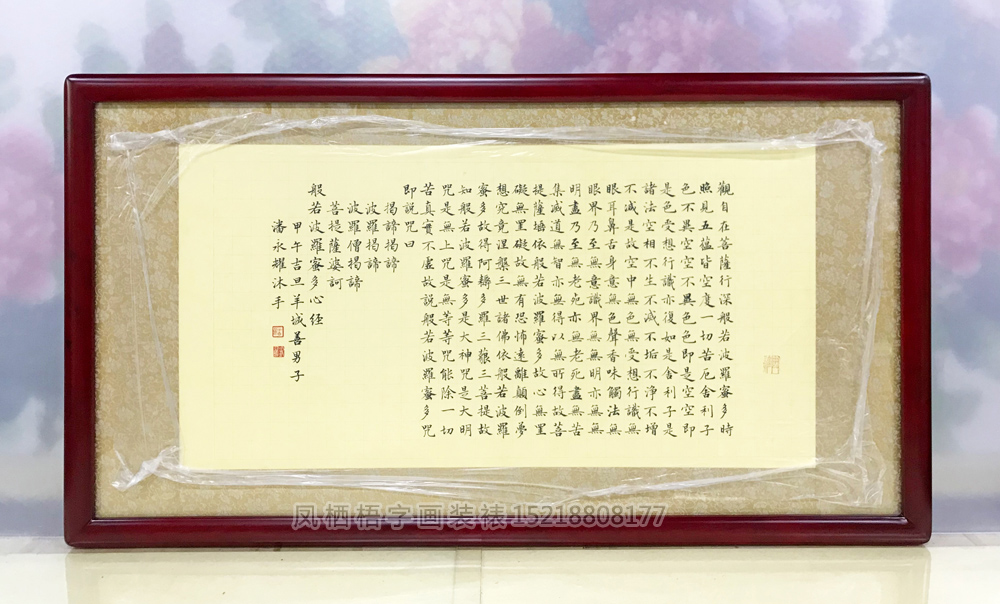 觀自在菩薩行深般若波羅蜜多時
照見五蘊皆空度一切苦厄舍利子
色不異空空不異色色即是空空即
是色受想行識亦復如是舍利子是
諸法空相不生不滅不垢不淨不增
不減是故空中無色無受想行識無
眼耳鼻舌身意無色聲香味觸法無
眼界乃至無意識界無無明亦無無
明盡乃至無老死亦無老死盡無苦
集滅道無智亦無得以無所得故菩
提薩埵依般若波羅蜜多故心無罣
礙無罣礙故無有恐怖遠離顛倒夢
想究竟涅槃三世諸佛依般若波羅
蜜多故得阿耨多羅三藐三菩提故
知般若波羅蜜多是大神咒是大明
咒是無上咒是無等等咒能除一切
苦真實不虛故說般若波羅蜜多咒
即說咒曰
揭諦揭諦
波羅揭諦
波羅僧揭諦
菩提薩婆訶
般若波羅蜜多心經
甲午吉旦羊城善男子
潘永耀沐手
凤栖梧字画装裱15218808177